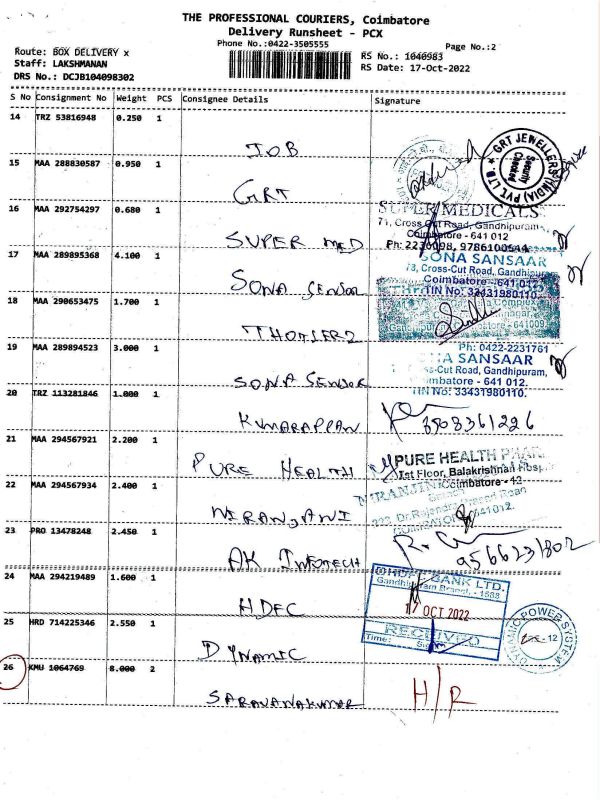 THE PROFESSIONAL COURIERS, Coimbatore
Delivery Runsheet - PCX
Phone No.:0422-3505555
Page No.:2
Route: BOX DELIVERY x
RS No.: 1040983
Staff: LAKSHMANAN
RS Date: 17-Oct-2022
DRS No.: DCJB104098302
S No Consignment No Weight PCS Consignee Details Signature
14 TRZ 53816948 0.250 1
IOB
GRT JEWELLERS (INDIA) PVT. LTD.
Security Checked
15 MAA 288830587 0.950 1
GRT
16 MAA 292754297 0.680 1
SUPER MED
SUPER MEDICALS
71, Cross Cut Road, Gandhipuram
Coimbatore - 641 012
Ph: 2230098, 9786100644
17 MAA 289895368 4.100 1
SONA SENSOR
SONA SANSAAR
73, Cross-Cut Road, Gandhipur
Coimbatore - 641 012.
TIN No: 33431980110.
18 MAA 290653475 1.700 1
THOTIERZ
Ph: 0422-2231761
19 MAA 289894523 3.000 1
SONA SENSOR
NA SANSAAR
ss-Cut Road, Gandhipuram,
imbatore - 641 012.
TIN No: 33431980110.
20 TRZ 113281846 1.000 1
KUMARAPPAN
21 MAA 294567921 2.200 1
PURE HEALTH
PURE HEALTH PHAR
Ist Floor, Balakrishnan Hosp
Coimbatore - 12
22 MAA 294567934 2.400 1
NIRANJANI
NIRANJINI
23 PRO 13478248 2.450 1
AK INFOTECH
9566231802
24 MAA 294219489 1.600 1
HDFC
HDFC BANK LTD.
Gandhipuram Branch - 1588
17 OCT 2022
RECEIVED
Time:
25 HRD 714225346 2.550 1
DYNAMIC
DYNAMIC POWER SYSTEM
26 KMU 1064769 8.000 2
SARAVANAKUMAR
H/R